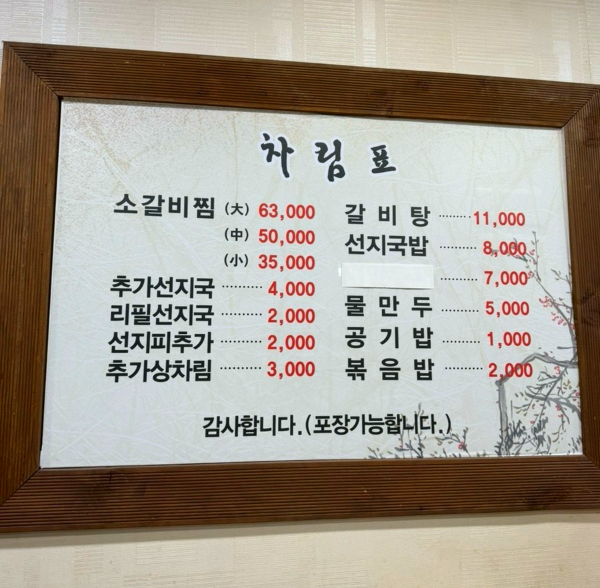 차림표
소갈비찜 (大) 63,000
(中) 50,000
(小) 35,000
추가선지국 ·········· 4,000
리필선지국 ·········· 2,000
선지피추가 ·········· 2,000
추가상차림 ·········· 3,000
갈비탕 ········ 11,000
선지국밥 ········· 8,000
········· 7,000
물만두 ·········· 5,000
공기밥 ·········· 1,000
볶음밥 ········· 2,000
감사합니다.(포장가능합니다.)